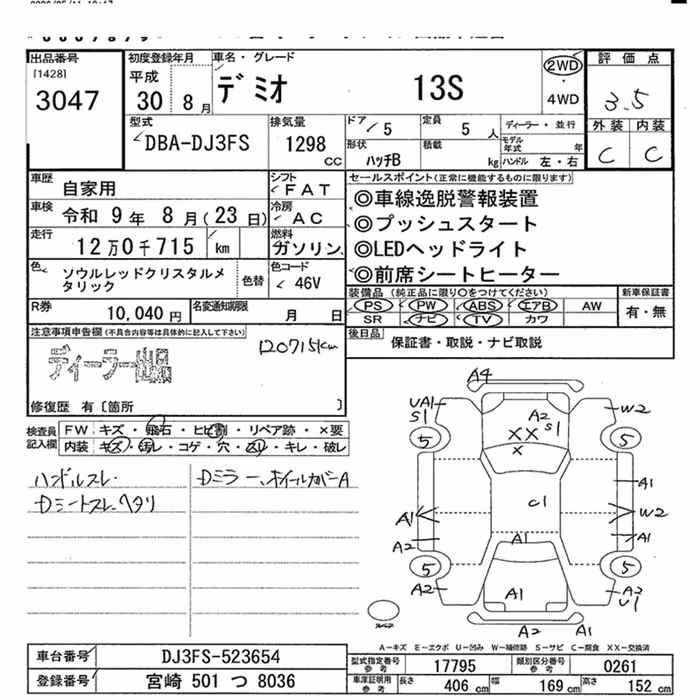 出品番号
[1428]
3047
初度登録年月
平成
30 8月
車名・グレード
デミオ 13S
2WD
・
4WD
評価点
3.5
外装 内装
C C
型式
DBA-DJ3FS
排気量
1298
CC
ドア
5
定員
5 人
ディーラー・並行
モデル年式 年
形状
ハッチB
積載
kg
ハンドル 左・右
車歴
自家用
シフト
FAT
車検
令和 9年 8月(23日)
冷房
AC
走行
12万0千715 km
燃料
ガソリン
色
ソウルレッドクリスタルメタリック
色替
色コード
46V
R券
10,040円
名変通知期限
月 日
セールスポイント(正常に機能するものに限ります)
◎車線逸脱警報装置
◎プッシュスタート
◎LEDヘッドライト
◎前席シートヒーター
装備品(純正品に限り○をつけてください)
PS PW ABS エアB AW
SR ナビ TV カワ
新車保証書
有・無
後日品
保証書・取説・ナビ取説
注意事項申告欄(不具合内容等は具体的に記入して下さい)
ディーラー出品
120715km
修復歴 有〔箇所 〕
検査員記入欄
FW キズ・飛石・ヒビ割・リペア跡・×要
内装 キズ・汚レ・コゲ・穴・凹・キレ・破レ
ハンドルスレ
Dシートスレ、ヘタリ
Dミラー、ホイールカバーA
A4
UA1
S1
A2
S1
W2
5
5
XX
X
C1
A1
A1
W2
A1
A2
A1
5
5
A2
A1
A2
U1
A2
A1
A-キズ E-エクボ U-凹み W-補修跡 S-サビ C-腐食 XX-交換済
車台番号
DJ3FS-523654
登録番号
宮崎 501 つ 8036
型式指定番号
参考
17795
類別区分番号
参考
0261
車庫証明用
参考
長さ 406 cm
幅 169 cm
高さ 152 cm